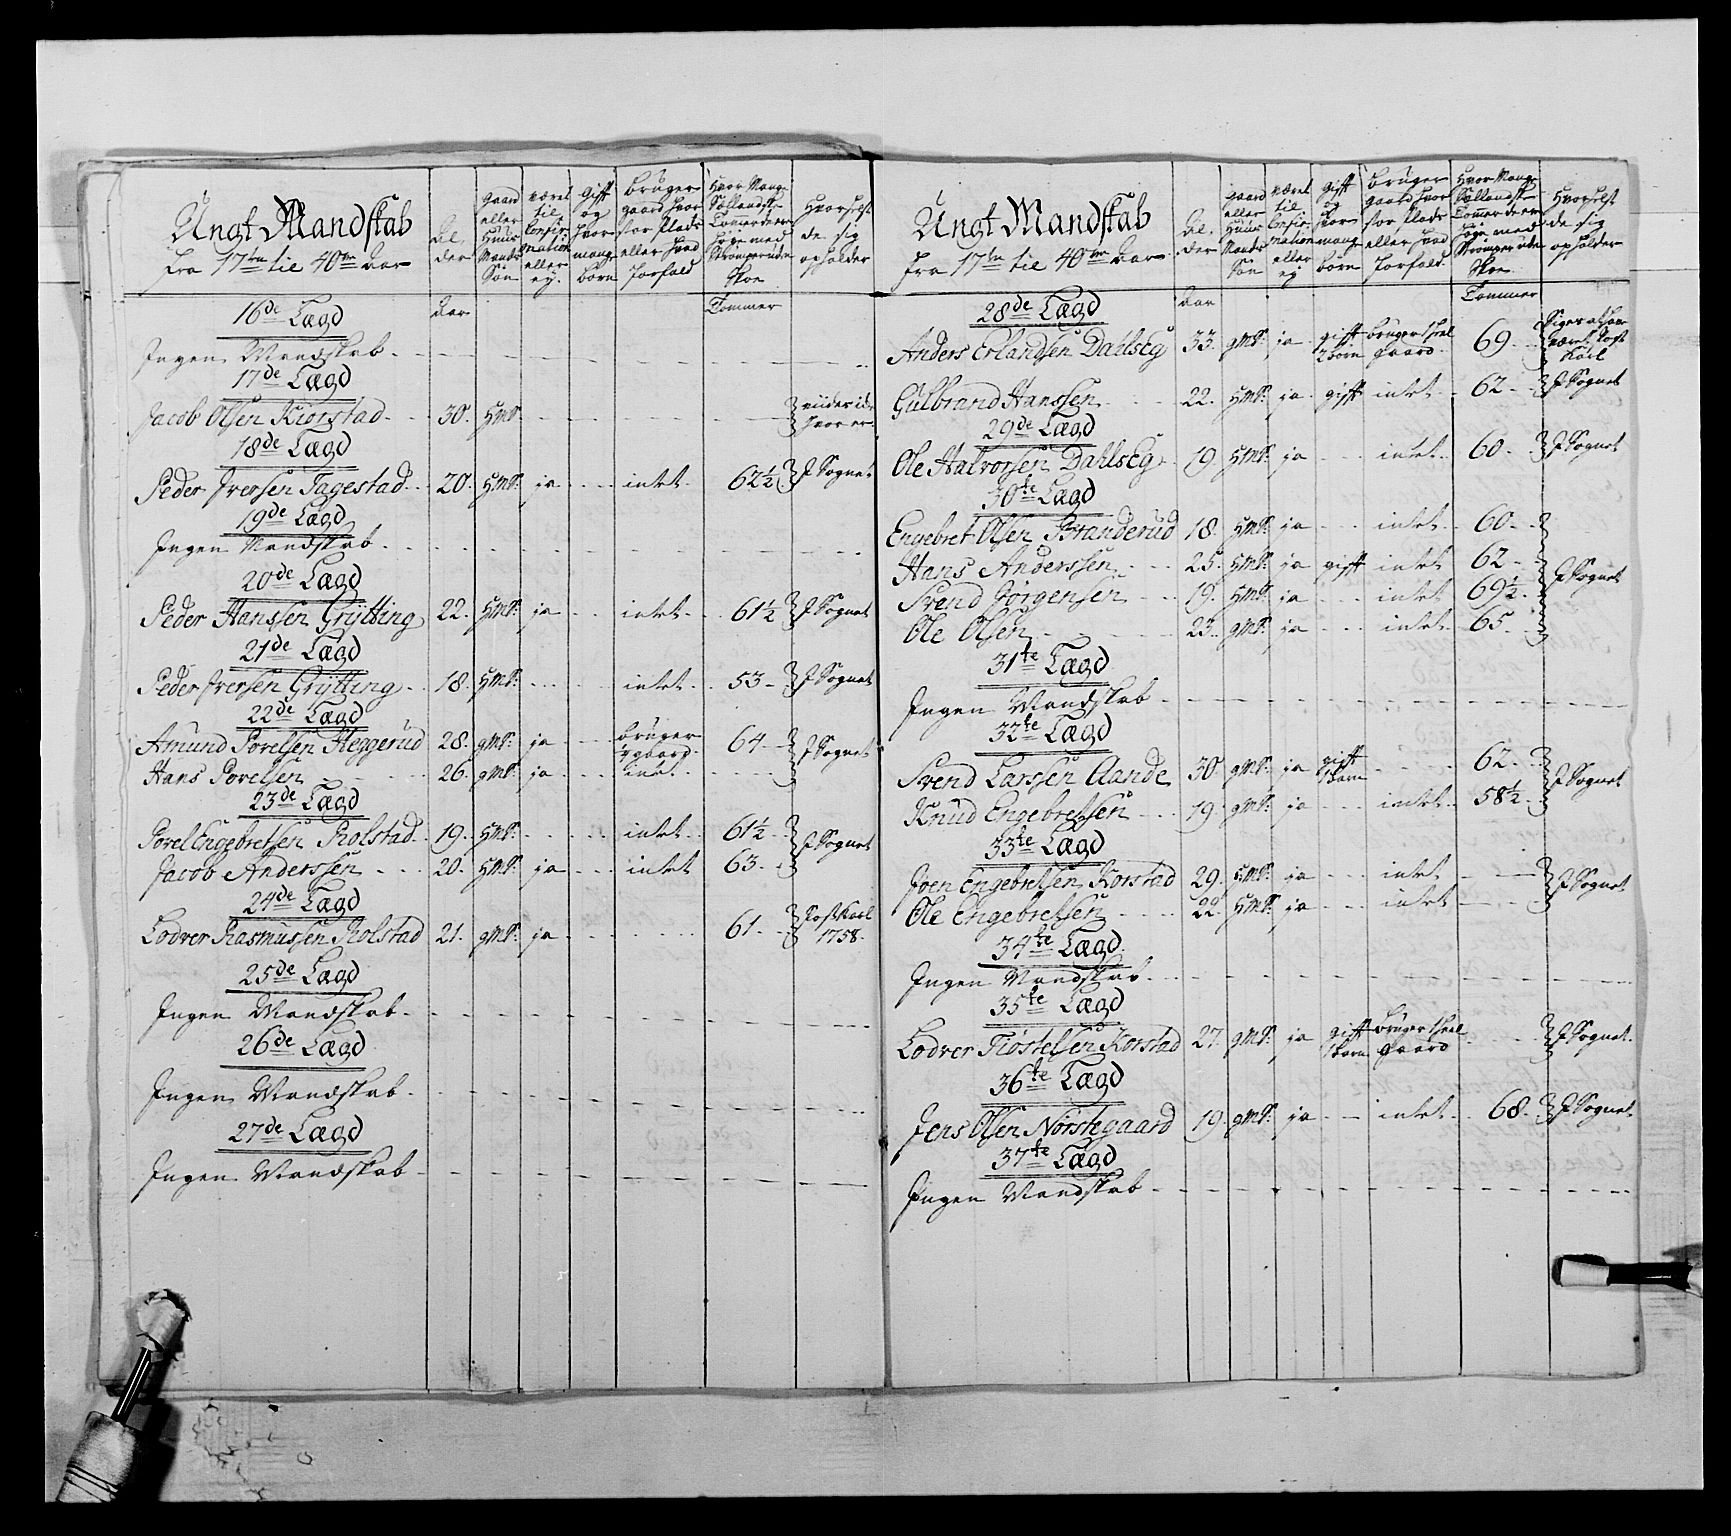 Ungt Mandskab
fra 17ten til 40de Aar
Al-
der
gaard
eller
Huus
Mands
Søn
været
til
Confir-
mation
eller
ey.
gift
og
hvor
mang
børn
bruger
gaard hvor
stor Plads
eller hvad
forfald
Hvor Mange
Siællandske
Tommer de er
høye med
Strømper uden
Skoe
Hvorhelst
de sig
opholder
Aar
Tommer
16de Lægd
Ingen Mandskab
17de Lægd
Jacob Olsen Kiorstad 30. HMS.
hvor er
18de Lægd
Peder Iversen Tagestad 20. HMS. ja intet 62½ I Sognet
19de Lægd
Ingen Mandskab
20de Lægd
Peder Hanssen Grÿtting 22. HMS. ja intet 61½ I Sognet
21de Lægd
Peder Iversen Grÿtting 18. HMS. intet 53 I Sognet
22de Lægd
Amund Povelsen Heggerud 28. gMS. ja bruger gaard 64 I Sognet
Hans Povelsen 26. gMS. ja intet
23de Lægd
Povel Engebretsen Rolstad 19. HMS. intet 61½ I Sognet
Jacob Anderssen 20. HMS. ja intet 63
24de Lægd
Lodver Rasmussen Rolstad 21. gMS. ja 61 Kost Karl
1758.
25de Lægd
Ingen Mandskab
26de Lægd
Ingen Mandskab
27de Lægd
Ingen Mandskab
Ungt Mandskab
fra 17ten til 40de Aar
Al-
der
gaard
eller
Huus
Mands
Søn
været
til
Confir-
mation
eller
ey
gift
og
hvor
mang
børn
bruger
gaard hvor
stor Plads
eller hvad
forfald
Hvor Mange
Siællandske
Tommer de er
høye med
Strømper uden
Skoe
Hvorhelst
de sig
opholder
Aar
Tommer
28de Lægd
Anders Erlandsen Dahlseg 33. gMS. ja gift 2 børn bruger heel gaard 69 Siges at have
været Kost
Karl
Gulbrand Hanssen 22. HMS. ja gift intet 62 I Sognet
29de Lægd
Ole Halvorsen Dahlseg 19. HMS. ja intet 60 I Sognet
30te Lægd
Engebret Olsen Branderud 18. HMS. ja intet 60
Hans Anderssen 25. HMS. ja gift intet 62 I Sognet
Svend Jørgensen 19. HMS. ja intet 69½
Ole Olsen 23. gMS. ja intet 65
31te Lægd
Ingen Mandskab
32te Lægd
Svend Larssen Aande 30. gMS. ja gift 1 barn 62 I Sognet
Knud Engebretsen 19. gMS. ja intet 58½
33te Lægd
Joen Engebretsen Korstad 29. HMS. ja intet I Sognet
Ole Engebretsen 22. HMS. ja intet
34te Lægd
Ingen Mandskab
35te Lægd
Lodver Tiøstelsen Korstad 27. gMS. ja gift 1 barn bruger heel gaard I Sognet
36te Lægd
Jens Olsen Nørstegaard 19. gMS. ja intet 68 I Sognet
37te Lægd
Ingen Mandskab